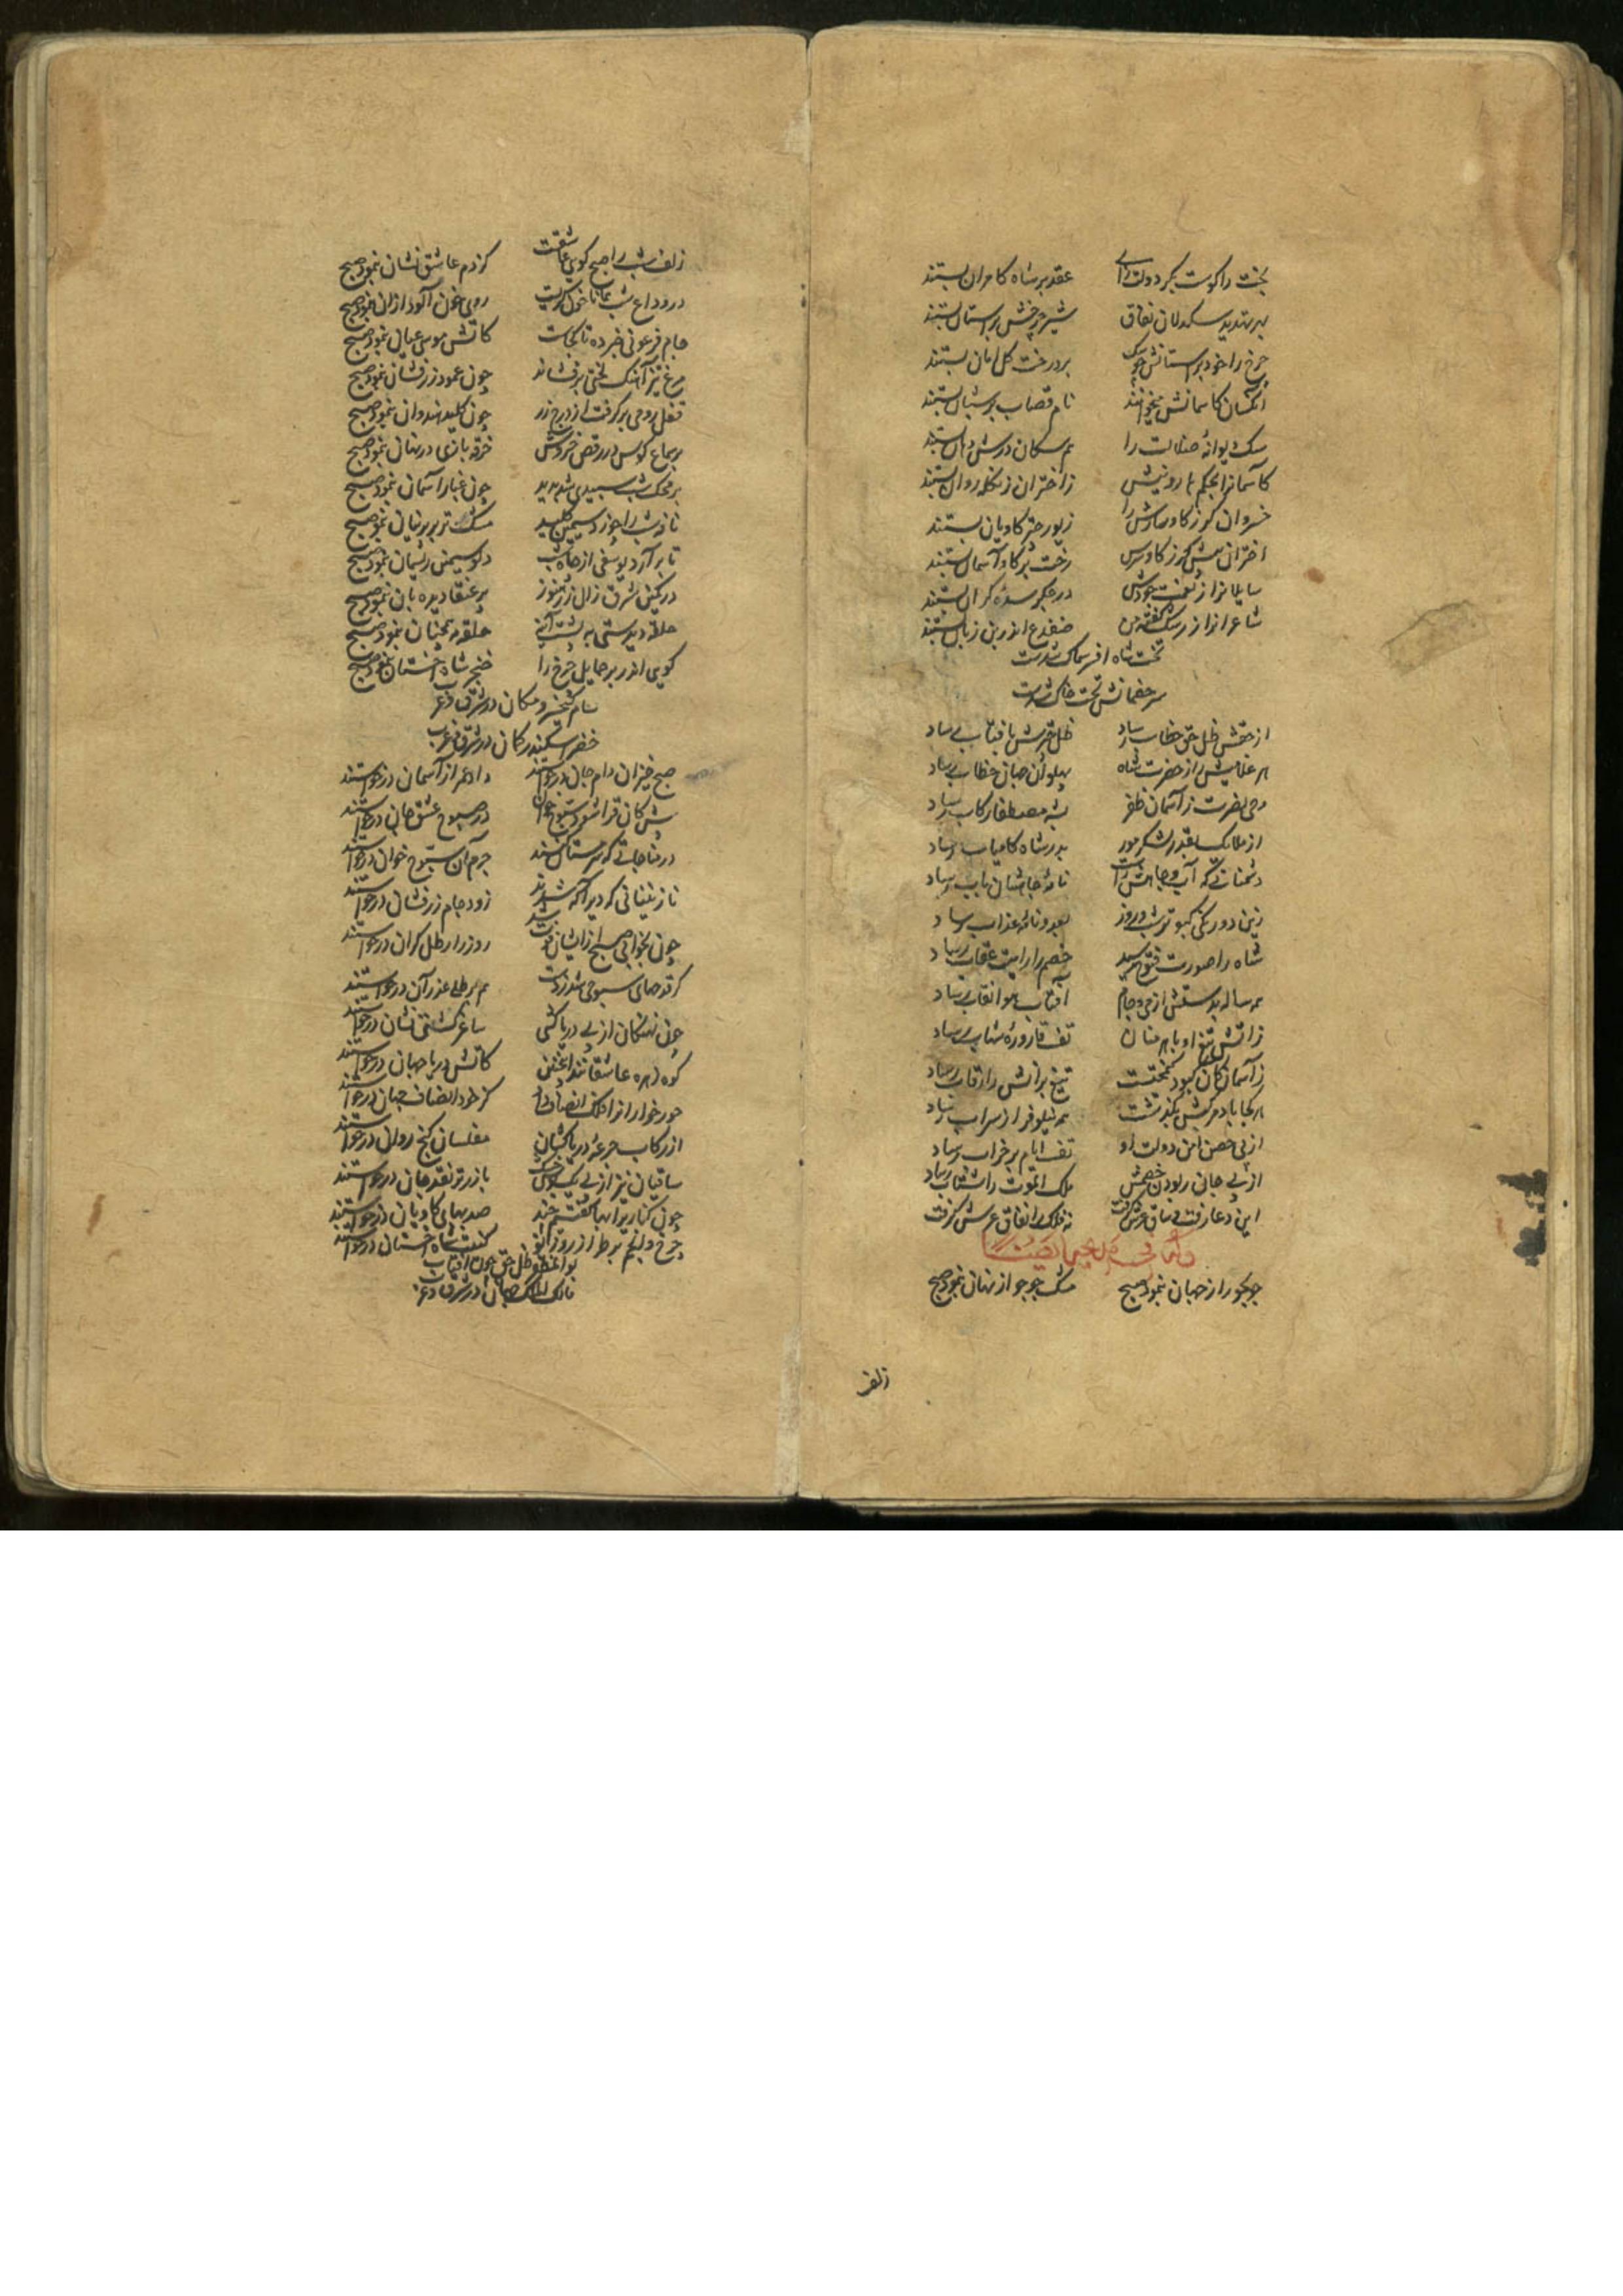 بخت را کوست بکر دولت رای عقد بر شاه کامران بستند
بهر تهدید سکدلان نفاق شیر چرخش بر استان بستند
چرخ را خود بر استانش چو سک بر درخت کل امان بستند
آنکسان کاسمانش میخوانند نام قصاب بر شبان بستند
سک دیوانهٔ ضلالت را هم سکان درش دهان بستند
کاسمانرا بحکم هارونیش ز اختران زنکله روان بستند
خسروان کرز کاو سارش را زیور چتر کاویان بستند
اختران پیش کرز کاو سرش رخت بر کاو آسمان بستند
سایلانرا ز نعمت جودش در جکر سدهٔ کران بستند
شاعرانرا ز رشک کفتهٔ من ضفدع اندر بن زبان بستند
تخت شاه افسر سماک شدست
سر خصمانش تحت خاک شدست
از حقش ظل حق خطاب رساد ظل چترش بافتاب رساد
بهر غلامیش را ز حضرت شاه پهلوان جهان خطاب رساد
وحی نصرت ز آسمان ظفر بشه مصطفا رکاب رساد
از ملایک بقدر لشکر مور بدر شاه کامیاب رساد
دشمنانی که آب و جاهش راست نامهٔ جاهشان بآب رساد
زین دو رنکی کبوتر شب و روز بعدو نامهٔ عذاب رساد
شاه را صورت فتوح رسید خصم را رایت عقاب رساد
همه ساله بدستش از می و جام آفتاب هوا نقاب رساد
ز آتش تیغ او باهرمنان تف قارورهٔ شهاب رساد
ز آسمان کان کبود کیمختست تیغ برانش را قراب رساد
هر کجا باد موکبش بکذشت همه نیلوفر از سراب رساد
از پی حصن امن دولت او تف ایام بر خراب رساد
از پی جان ربودن خصمش ملک الموت را شتاب رساد
این دعا رفت و ساق عرش کرفت نه فلک را نفاق عرش کرفت
جو بجو راز جهان نمود صبح مشک جو جو از نهان نمود صبح
زلف
زلف شب را صبح کویی عاشقست کز دم عاشق نشان نمود صبح
در وداع شب همانا خون کریست روی خون آلود ازان نمود صبح
جام فرعونی خبر ده تا کجاست کاتش موسی عیان نمود صبح
مرغ تیز آهنک لختی پر فشاند چون عمود زر فشان نمود صبح
قفل رومی بر کرفت از درج زر چون کلید هندوان نمود صبح
بر سماع کوس در رقص خروش خرقه بازی در نهان نمود صبح
بر محک شب سپیدی شد پدید چون غبار آسمان نمود صبح
نافهٔ شب را چو زد سیمین کلید مشک تر بر پرنیان نمود صبح
تا بر آرد یوسفی از چاه شب دلو سیمین ریسمان نمود صبح
در کمین شرق زال زر هنوز پر عنقا دیده بان نمود صبح
حلقه دیدستی به پشت آینه حلقهٔ مه همچنان نمود صبح
کویی اندر بر حمایل چرخ را خنجر شاه اخستان نمود صبح
سام کیخسرو مکان در شرق و غرب
خضر اسکندر کان در شرق و غرب
صبح خیزان دام جان درخواستند داد عمر از آسمان درخواستند
پیش کان قرا شود سبوح خوان در صبوح عشق جان درخواستند
در مناجاتی که سرمستان کنند جرم آن سبوح خوان درخواستند
نازنینانی که دیر آکه شدند زود جام زر فشان درخواستند
چون بخوابی صبح ازایشان فوت شد روز را رطل کران درخواستند
کر قدحهای صبوحی شد ز دست هم برطلی عذر آن درخواستند
چون نهنکان از پی دریا کشی ساغر کشتی نشان درخواستند
کوه زهره عاشقانند اینچنین کاتش دریا جهان درخواستند
حور خوارانرا فلک انصاف داد کز خود انصاف جهان درخواستند
از رکاب جرعهٔ دریا کشان مفلسان کنج روان درخواستند
ساقیان نیز از پی یک بوس خشک بازر تو نقد جان درخواستند
چون کناریرا بها کفتم چند صد بهای کاویان درخواستند
چرخ و انجم بر طراز روز نو کنیت شاه اخستان درخواستند
بوالمظفر ظل حق چون آفتاب
مالک الملک جهان در شرق و غرب